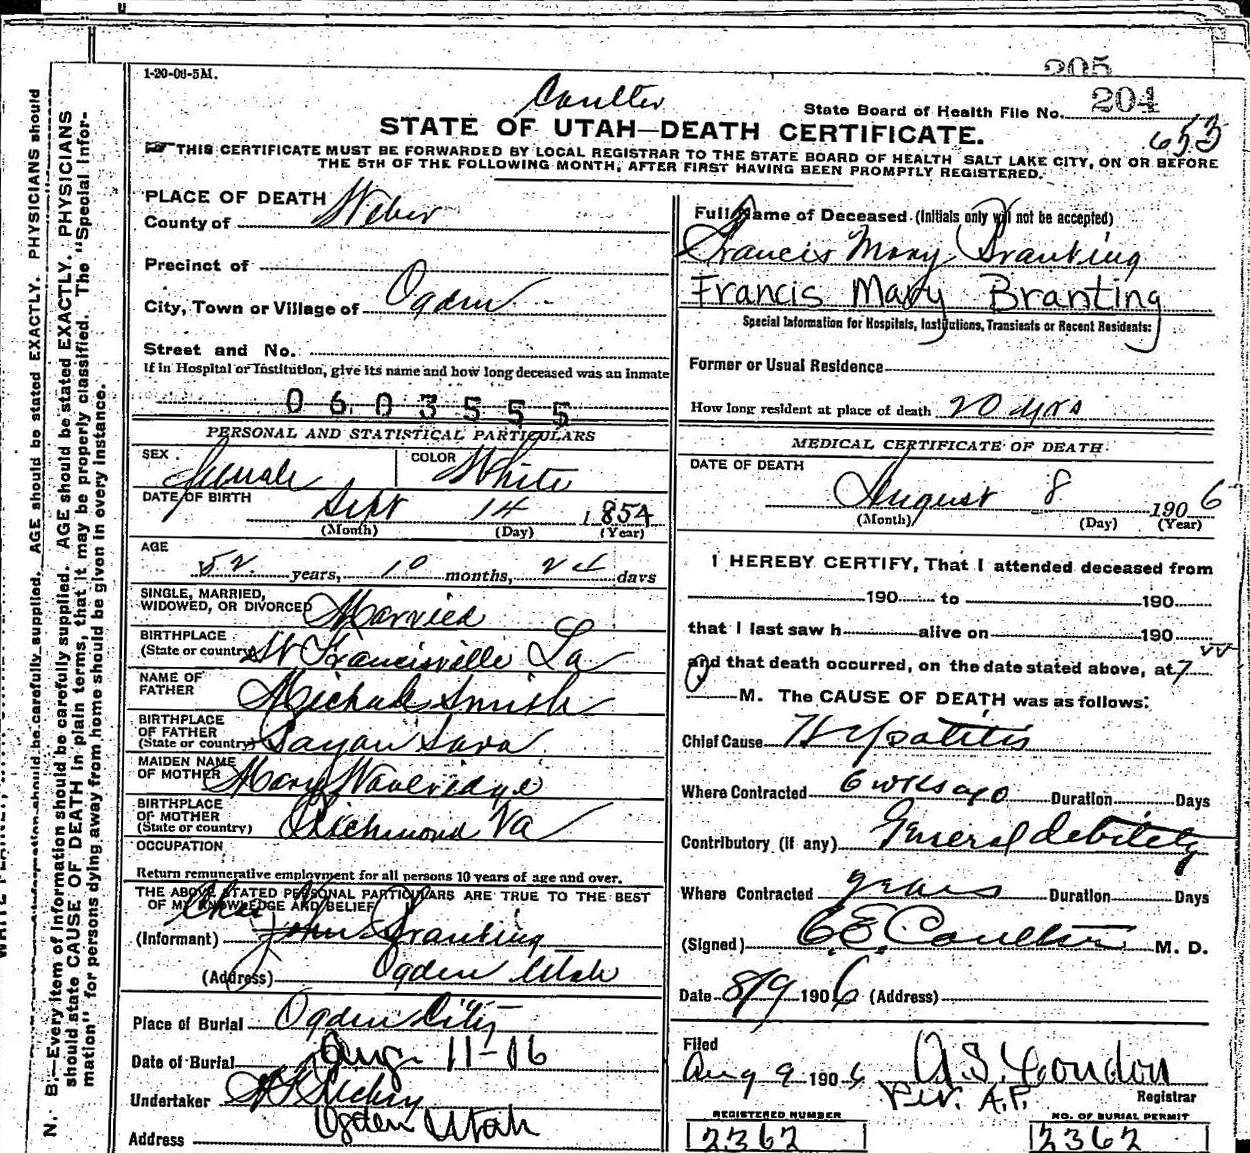 1-20-06-5M.
Coulter
205
State Board of Health File No. 204
653
STATE OF UTAH—DEATH CERTIFICATE.
THIS CERTIFICATE MUST BE FORWARDED BY LOCAL REGISTRAR TO THE STATE BOARD OF HEALTH SALT LAKE CITY, ON OR BEFORE
THE 5TH OF THE FOLLOWING MONTH, AFTER FIRST HAVING BEEN PROMPTLY REGISTERED.
PLACE OF DEATH
County of Weber
Precinct of
City, Town or Village of Ogden
Street and No.
If in Hospital or Institution, give its name and how long deceased was an inmate
0603555
PERSONAL AND STATISTICAL PARTICULARS
SEX female COLOR White
DATE OF BIRTH Sept 14 1854
(Month) (Day) (Year)
AGE
52 years, 10 months, 24 days
SINGLE, MARRIED,
WIDOWED, OR DIVORCED Married
BIRTHPLACE
(State or country) St Francisville La
NAME OF
FATHER Smith
BIRTHPLACE
OF FATHER
(State or country) Sara
MAIDEN NAME
OF MOTHER Mary
BIRTHPLACE
OF MOTHER
(State or country) Richmond Va
OCCUPATION
Return remunerative employment for all persons 10 years of age and over.
THE ABOVE STATED PERSONAL PARTICULARS ARE TRUE TO THE BEST
OF MY KNOWLEDGE AND BELIEF
(Informant) John Branting
(Address) Ogden Utah
Place of Burial Ogden City
Date of Burial Aug 11-06
Undertaker
Address Ogden Utah
Full Name of Deceased (Initials only will not be accepted)
Francis Mary Branting
Francis Mary Branting
Special Information for Hospitals, Institutions, Transients or Recent Residents:
Former or Usual Residence
How long resident at place of death 20 yrs
MEDICAL CERTIFICATE OF DEATH
DATE OF DEATH
August 8 1906
(Month) (Day) (Year)
I HEREBY CERTIFY, That I attended deceased from
190 to 190
that I last saw h alive on 190
and that death occurred, on the date stated above, at 7
M. The CAUSE OF DEATH was as follows:
Chief Cause Hepatitis
Where Contracted 6 wks ago Duration Days
Contributory (if any) General debility
Where Contracted years Duration Days
(Signed) C E Coulter M. D.
Date 8/9 1906 (Address)
Filed
Aug 9 1906 Condon
Per. A.P. Registrar
REGISTERED NUMBER NO. OF BURIAL PERMIT
2362 2362
N. B.—Every item of information should be carefully supplied. AGE should be stated EXACTLY. PHYSICIANS
should state CAUSE OF DEATH in plain terms, that it may be properly classified. The "Special Infor-
mation" for persons dying away from home should be given in every instance.